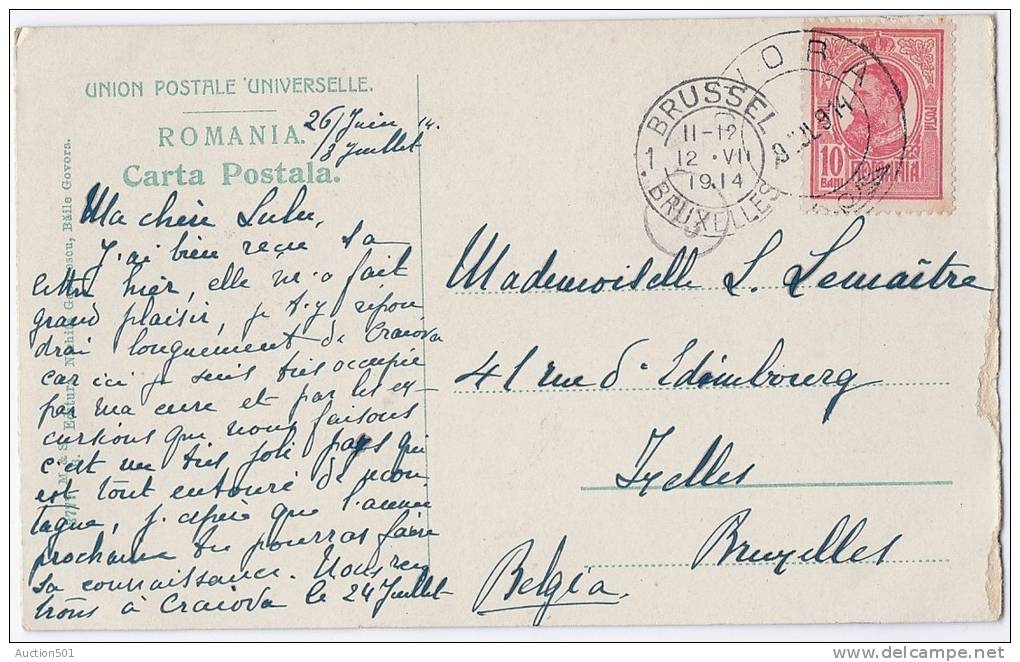 UNION POSTALE UNIVERSELLE.
ROMANIA.
Carta Postala.
26/Juin 14.
8 Juillet
Ma chère Lulu,
J'ai bien reçu ta
lettre hier, elle m'a fait
grand plaisir, je t-y répon
drai longuement de Craiova
car ici je suis très occupée
par ma cure et par les ex-
cursions que nous faisons
c'est un très joli pays qui
est tout entouré de mon
tagne, j'espère que l'année
prochaine tu pourras faire
sa connaissance. Nous ren
trons à Craiova le 24 Juillet
Editura Băile Govora.
BRUSSEL
1
11-12
12 · VII
1914
BRUXELLES
VORA
JUL 914
10
BANI
POSTA
ROMANIA
Mademoiselle L. Lemaître
41 rue d'Edimbourg
Ixelles
Bruxelles
Belgia.
Auction501
delcampe.net